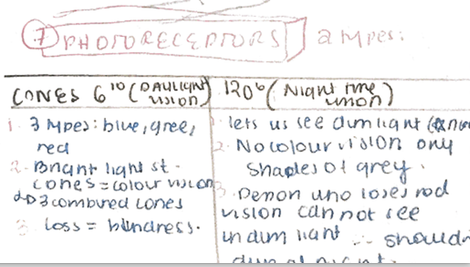 7 PHOTORECEPTORS 2 types:
CONES 6¹⁰ (DAYLIGHT vision)
1. 3 types: blue, gree, red
2. Bright light st.
cones = colour vision
2D 3 combined cones
3. loss = blindness.
120⁶ (Night time vision)
1. lets us see dim light
2. No colour vision only
shades of grey.
3. Person who loses rod
vision cannot see
in dim light ∴ should